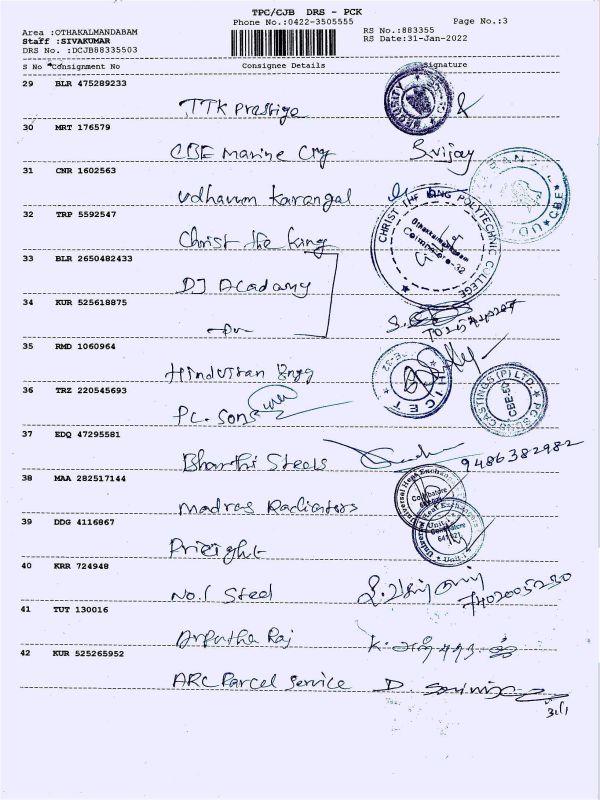 TPC/CJB DRS - PCK
Phone No.:0422-3505555 Page No.:3
Area :OTHAKALMANDABAM RS No.:883355
Staff :SIVAKUMAR RS Date:31-Jan-2022
DRS No. :DCJB88335503
S No Consignment No Consignee Details Signature
29 BLR 475289233
TTK Prastige
SECURITY
30 MRT 176579
CBE Marine Crg S.vijay
31 CNR 1602563
udhavum Karangal
CBE
32 TRP 5592547
Christ the King
CHRIST THE KING POLYTECHNIC COLLEGE
Othakkalmandapam
Coimbatore-32
33 BLR 2650482433
DJ Acadamy
34 KUR 525618875
35 RMD 1060964
Hindustan Engg
HICET
36 TRZ 220545693
PC. Sons
PC SONS CASTINGS (P) LTD.
37 EDQ 47295581
Bharthi Steels 9486382982
38 MAA 282517144
Madras Radiators
Universal Heat Exchangers
Coimbatore
39 DDG 4116867
Priright
Universal Heat Exchangers
Unit-1
Coimbatore
40 KRR 724948
No.1 Steel 7402005230
41 TUT 130016
Arputha Raj
42 KUR 525265952
ARC Parcel Service D.
31/1